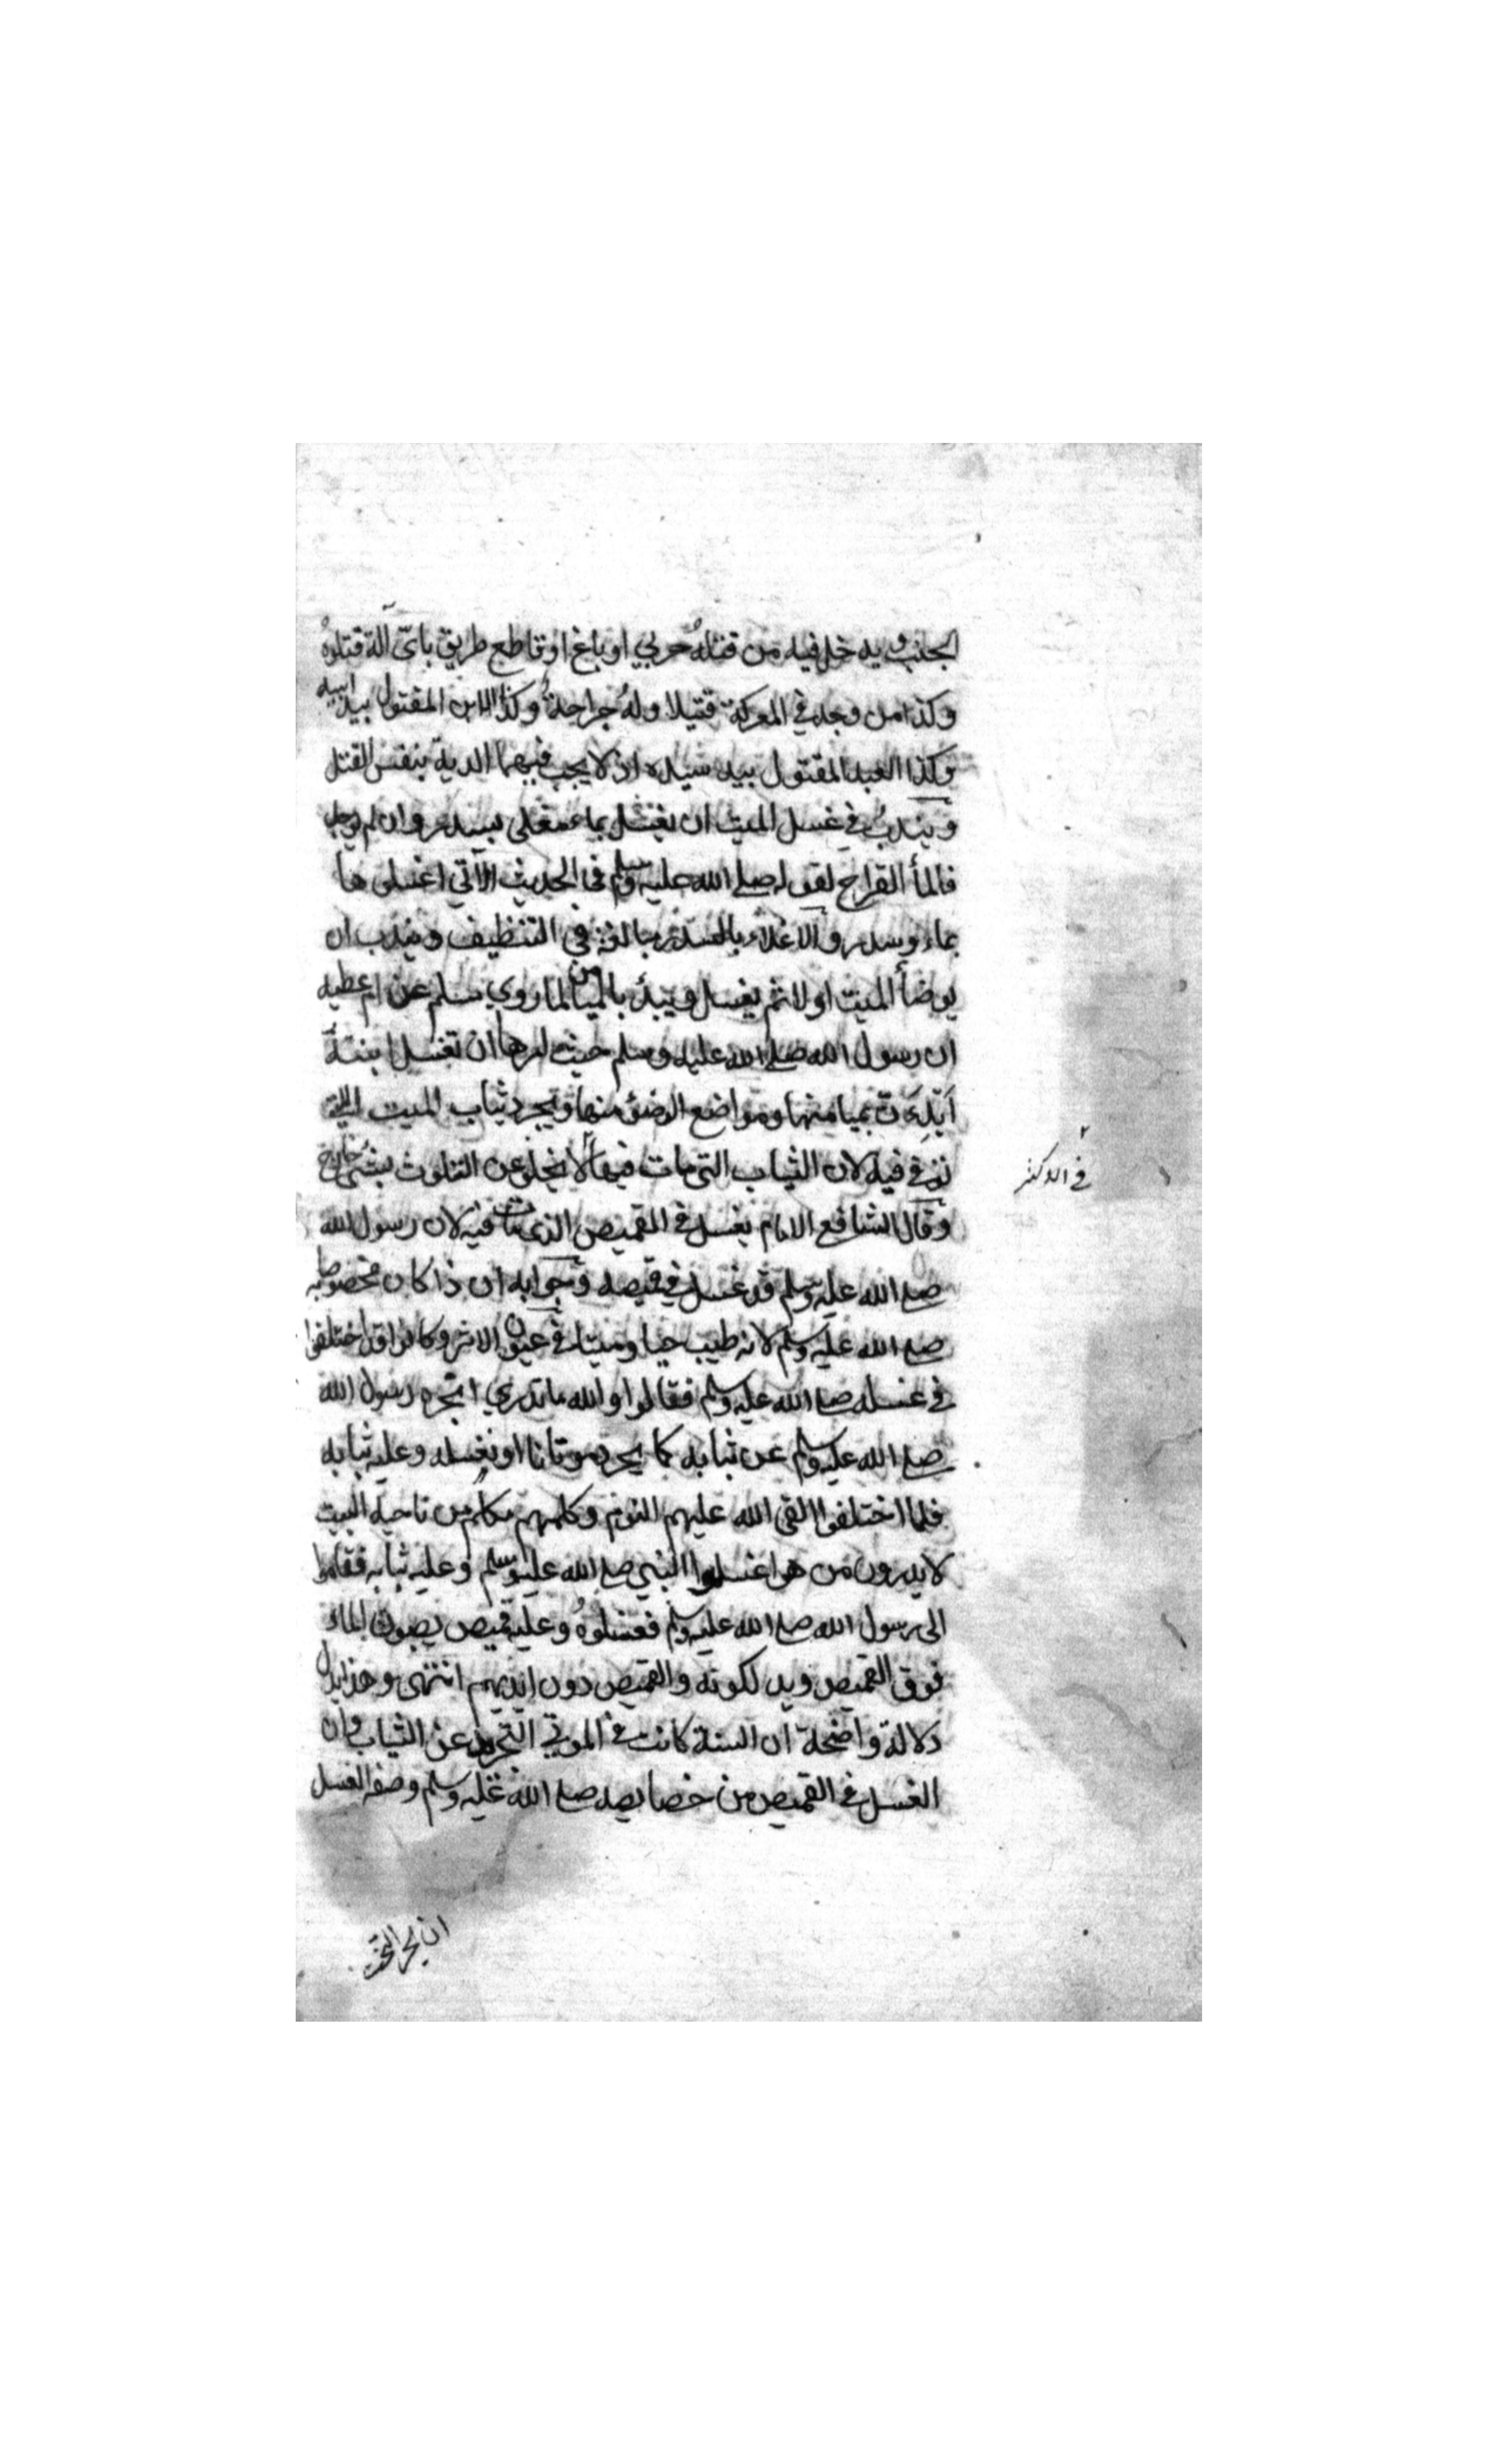 الجنب ويدخل فيه من قتله حربي او باغ او قاطع طريق باى آلة قتلوه
وكذا من وجد في المعركة قتيلا وله جراحة وكذا الابن المقتول بيد ابيه
وكذا العبد المقتول بيد سيده اذ لا يجب فيهما الدية بنفس القتل
ويندب في غسل الميت ان يغسل بماء مغلى بسدر وان لم يوجد
فالمأ القراح لقوله صلى الله عليه وسلم في الحديث الآتي اغسلوها
بماء وسدر والاغلاء بالسدر مبالغة في التنظيف ويندب ان
يوضأ الميت اولا ثم يغسل ويبدأ بالميامن لما روي مسلم عن ام عطيه
ان رسول الله صلى الله عليه وسلم حيث امرها ان تغسل ابنته
ابدءن بميامنها ومواضع الوضؤ منها ويجرد ثياب الميت التي
توفي فيه لان الثياب التي مات فيها لا يخلو عن التلوث بشئ خارج
وقال الشافع الامام يغسل في القميص الذي مات فيه لان رسول الله
صلى الله عليه وسلم قد غسل في قميصه وجوابه ان ذا كان مخصوصا به
صلى الله عليه وسلم لانه طيب حيا وميتا في الاثر وكانوا قد اختلفوا
في غسله صلى الله عليه وسلم فقالوا والله ما ندري انجرد رسول الله
صلى الله عليه وسلم عن ثيابه كما يجرد موتانا او نغسله وعليه ثيابه
فلما اختلفوا القى الله عليهم النوم وكلمهم مكلم من ناحية البيت
لا يدرون من هو اغسلوا النبي صلى الله عليه وسلم وعليه ثيابه فقاموا
الى رسول الله صلى الله عليه وسلم فغسلوه وعليه قميص يصبون الماء
فوق القميص ويدلكونه والقميص دون ايديهم انتهى وهذا يدل
دلالة واضحة ان السنة كانت في الموتي التجريد عن الثياب وان
الغسل في القميص من خصايصه صلى الله عليه وسلم وصفة الغسل